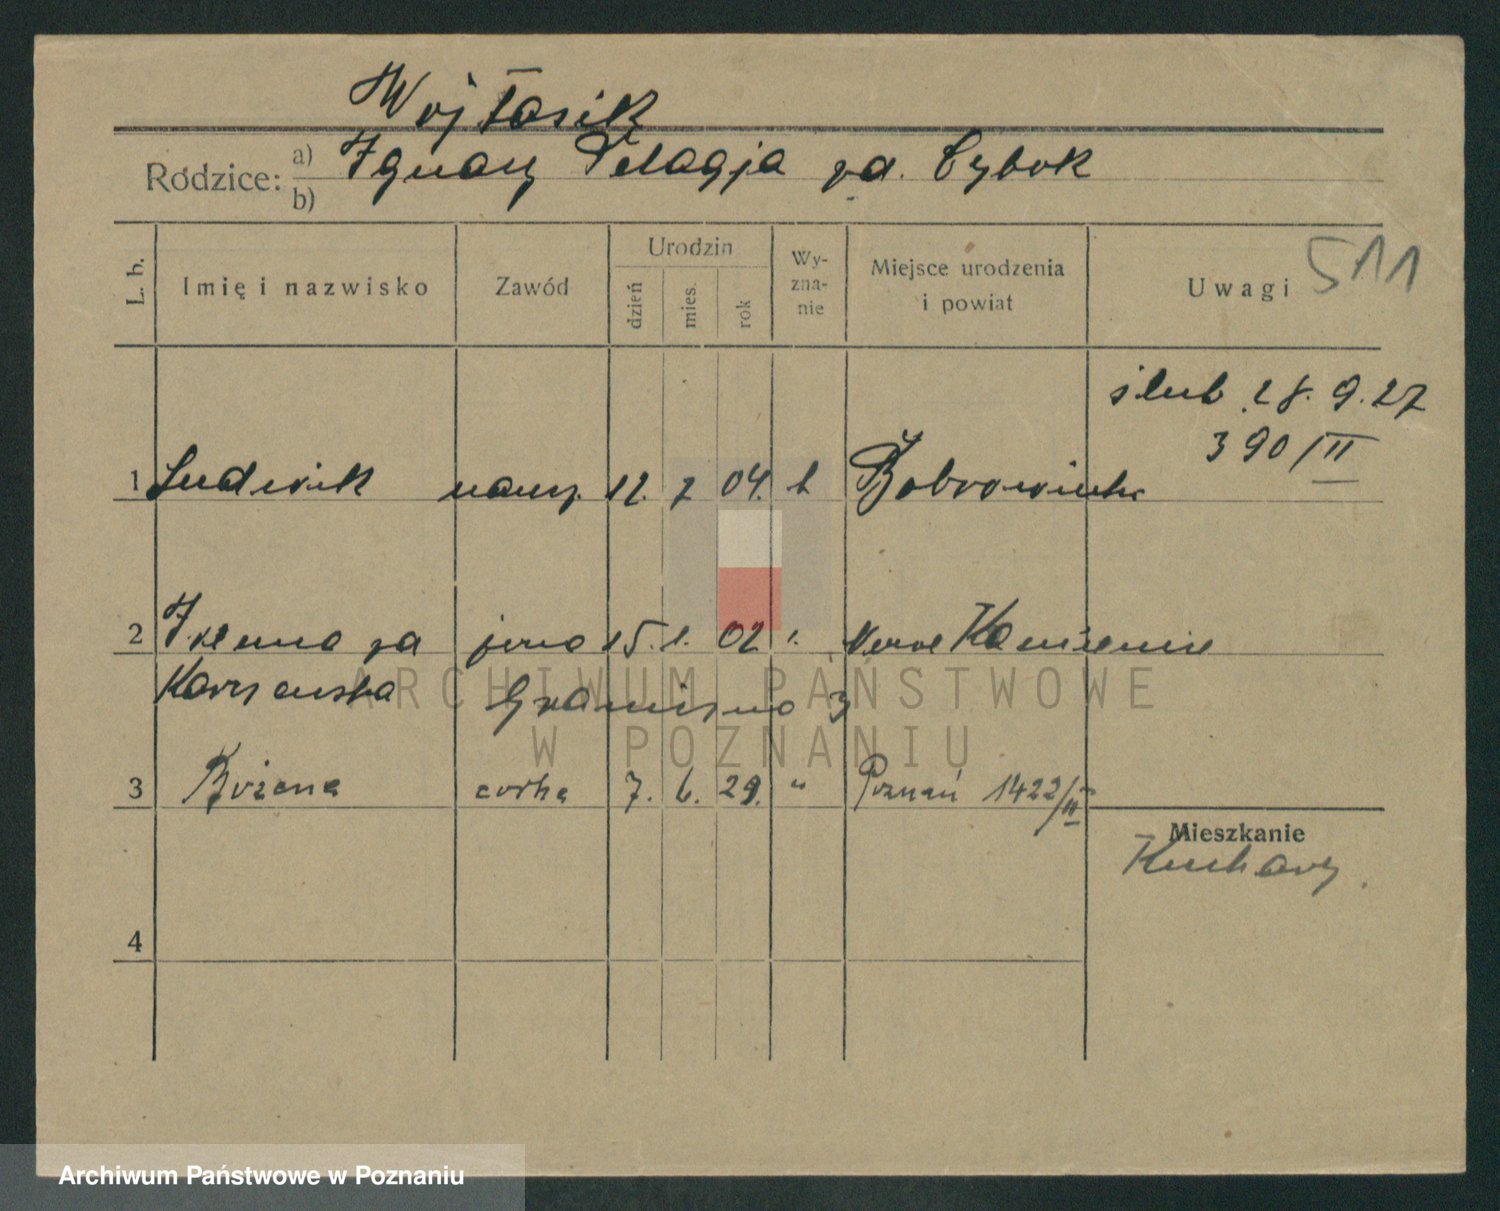 Wojtasik
Rodzice: a) Ignacy Pelagja zd. Cybok
b)
L. b. Imię i nazwisko Zawód Urodzin dzień mies. rok Wy-zna-nie Miejsce urodzenia i powiat Uwagi 511
ślub 28. 9. 27
390/II
1 Ludwik naucz. 12. 7 04. k
2 Irena za żona 15. 1. 02. Kamienie
Graniczna 3
3 Bożena córka 7. 6. 29. " Poznań 1422/II
Mieszkanie
Kuchary
4
ARCHIWUM PAŃSTWOWE
W POZNANIU
Archiwum Państwowe w Poznaniu